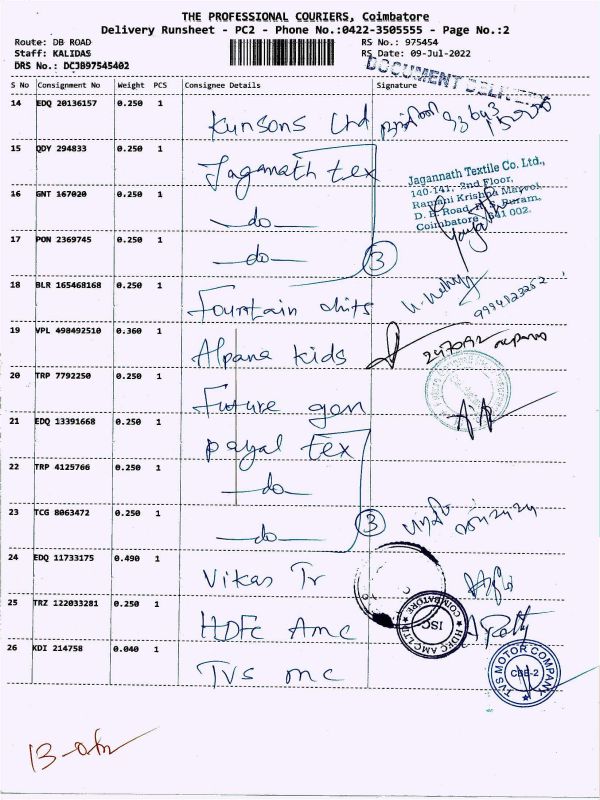 THE PROFESSIONAL COURIERS, Coimbatore
Delivery Runsheet - PC2 - Phone No.:0422-3505555 - Page No.:2
Route: DB ROAD RS No.: 975454
Staff: KALIDAS RS Date: 09-Jul-2022
DRS No.: DCJB97545402
DOCUMENT
S No Consignment No Weight PCS Consignee Details Signature
14 EDQ 20136157 0.250 1 Kunsons Ltd
15 QDY 294833 0.250 1 Jaganath tex
Jagannath Textile Co. Ltd.,
140-141, 2nd Floor,
16 GNT 167020 0.250 1 -do-
Coimbatore - 641 002.
17 PON 2369745 0.250 1 -do- 3
18 BLR 165468168 0.250 1 Fountain chits
19 VPL 498492510 0.360 1 Alpana kids
20 TRP 7792250 0.250 1 Future gen
21 EDQ 13391668 0.250 1 payal tex
22 TRP 4125766 0.250 1 -do-
23 TCG 8063472 0.250 1 -do- 3
24 EDQ 11733175 0.490 1 Vikas Tr
25 TRZ 122033281 0.250 1 HDFC AMC
HDFC AMC LTD COIMBATORE ISC
26 KDI 214758 0.040 1 TVS mc
TVS MOTOR COMPANY CBE-2